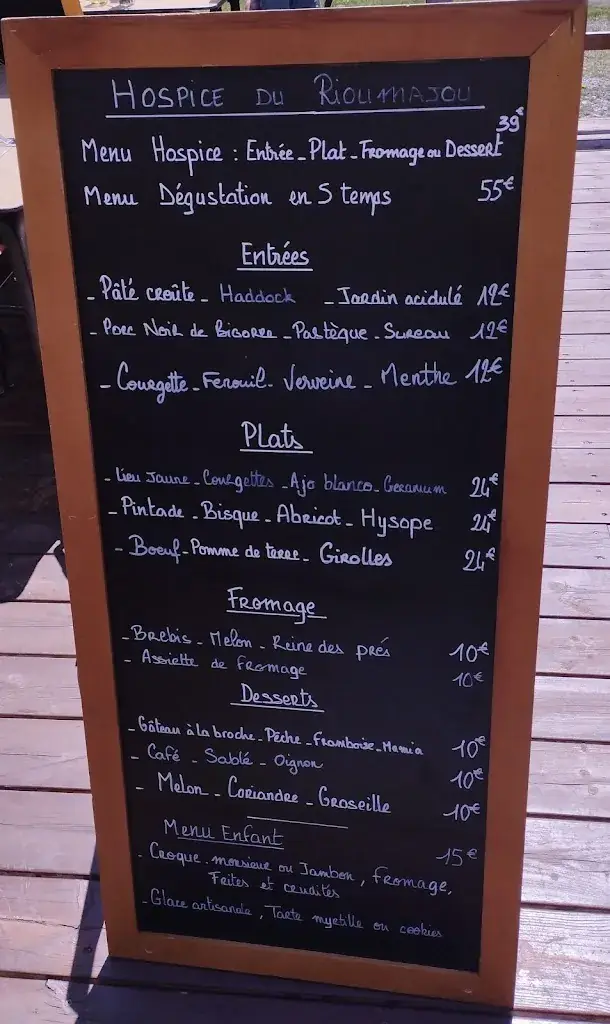 HOSPICE DU RIOUMAJOU
39€
Menu Hospice : Entrée - Plat - Fromage ou Dessert
Menu Dégustation en 5 temps 55€
Entrées
- Pâté croûte - Haddock - Jardin acidulé 12€
- Porc Noir de Bigorre - Pastèque - Sureau 12€
- Courgette - Fenouil - Verveine - Menthe 12€
Plats
- Lieu Jaune - Courgettes - Ajo blanco - Geranium 24€
- Pintade - Bisque - Abricot - Hysope 24€
- Boeuf - Pomme de terre - Girolles 24€
Fromage
- Brebis - Melon - Reine des prés 10€
- Assiette de fromage 10€
Desserts
- Gâteau à la broche - Pêche - Framboise - 10€
- Café - Sablé - Oignon 10€
- Melon - Coriandre - Groseille 10€
Menu Enfant 15€
- Croque-monsieur ou Jambon, fromage,
Frites et crudités
- Glace artisanale, Tarte myrtille ou cookies